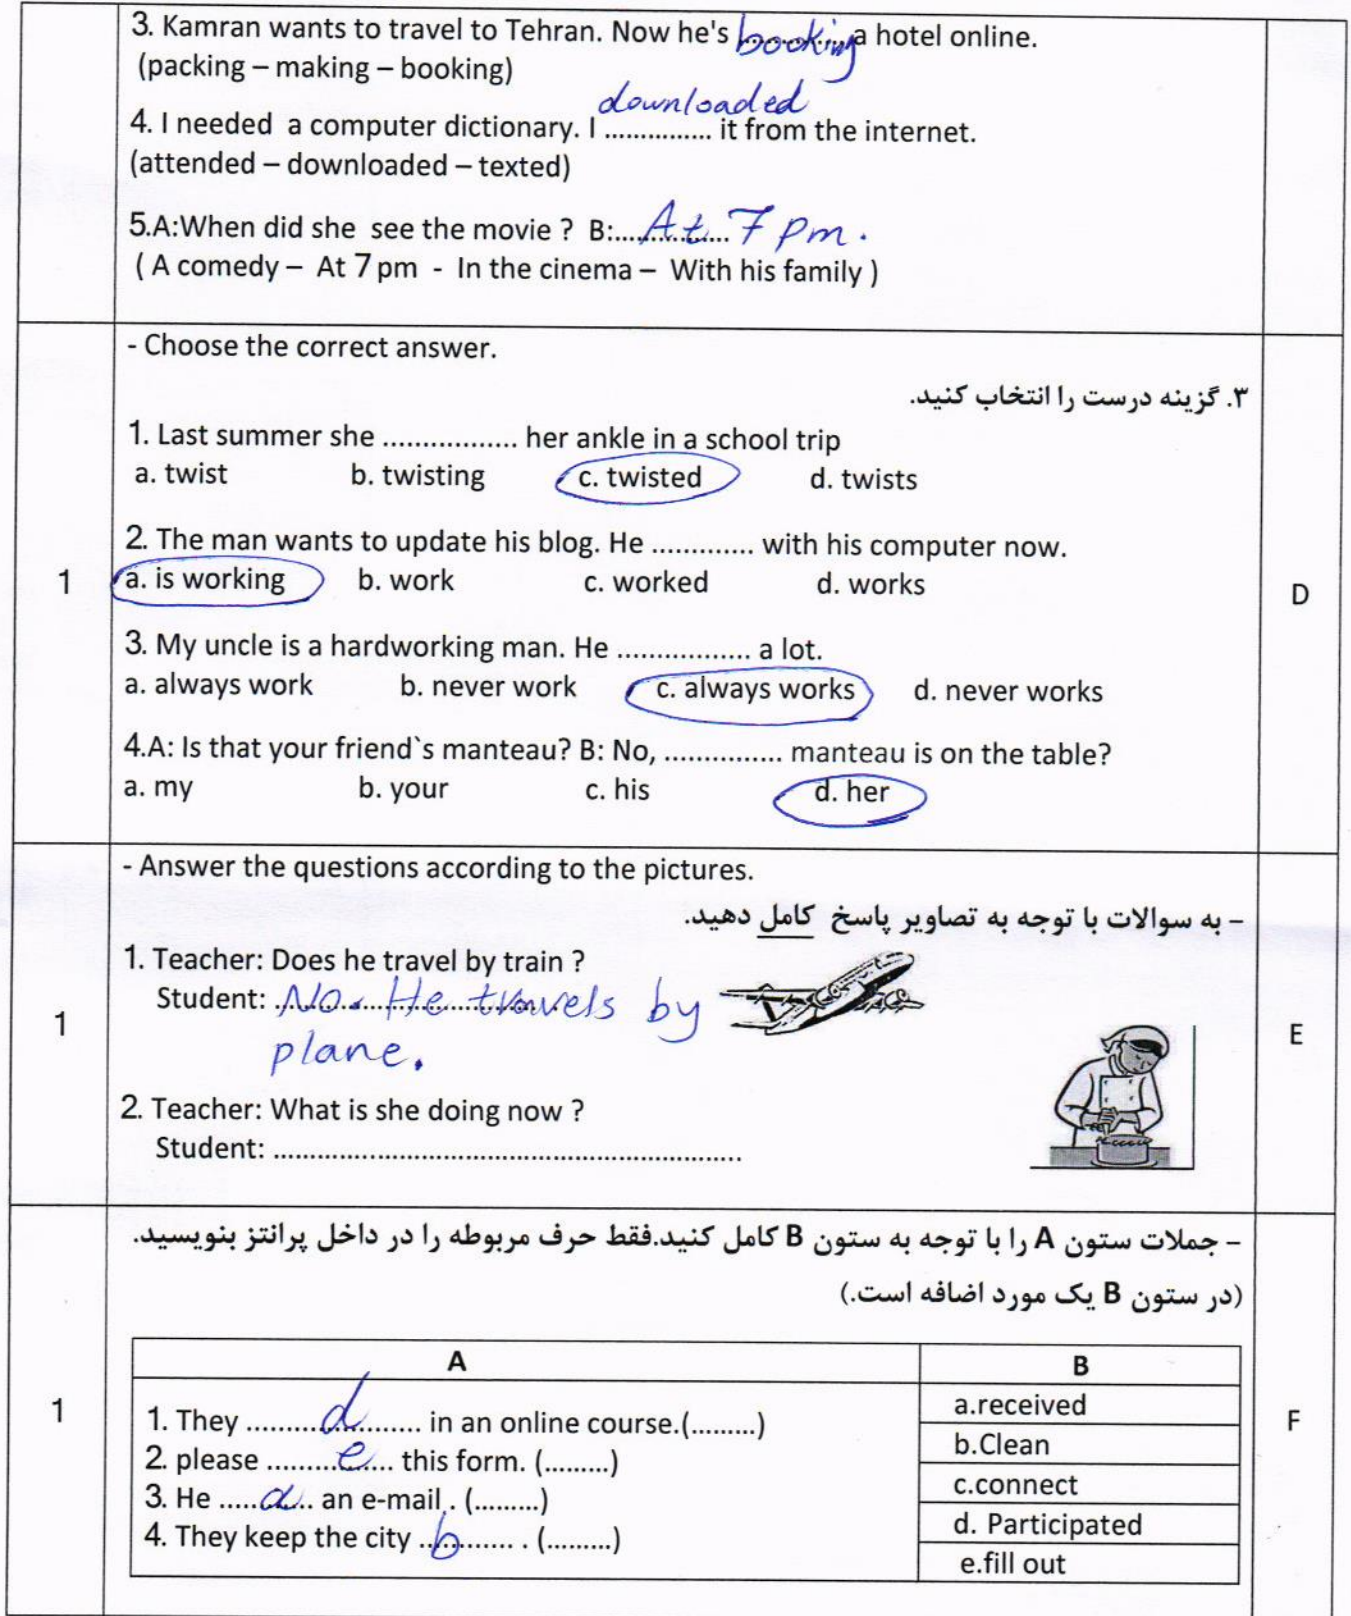 3. Kamran wants to travel to Tehran. Now he's booking a hotel online.
(packing – making – booking)
downloaded
4. I needed a computer dictionary. I ............... it from the internet.
(attended – downloaded – texted)
5.A:When did she see the movie ? B:................ At 7 pm.
( A comedy – At 7 pm - In the cinema – With his family )
- Choose the correct answer.
۳. گزینه درست را انتخاب کنید.
1. Last summer she ................. her ankle in a school trip
a. twist b. twisting c. twisted d. twists
2. The man wants to update his blog. He ............. with his computer now.
1 a. is working b. work c. worked d. works D
3. My uncle is a hardworking man. He ................. a lot.
a. always work b. never work c. always works d. never works
4.A: Is that your friend`s manteau? B: No, ............... manteau is on the table?
a. my b. your c. his d. her
- Answer the questions according to the pictures.
- به سوالات با توجه به تصاویر پاسخ کامل دهید.
1. Teacher: Does he travel by train ?
Student: No. He travels by
1 E
plane.
2. Teacher: What is she doing now ?
Student: ............................................................
- جملات ستون A را با توجه به ستون B کامل کنید.فقط حرف مربوطه را در داخل پرانتز بنویسید.
(در ستون B یک مورد اضافه است.)
A B
1 F
1. They ..........d.......... in an online course.(.........) a.received
2. please .........e...... this form. (.........) b.Clean
3. He .....a... an e-mail . (.........) c.connect
4. They keep the city ..b.......... . (.........) d. Participated
e.fill out